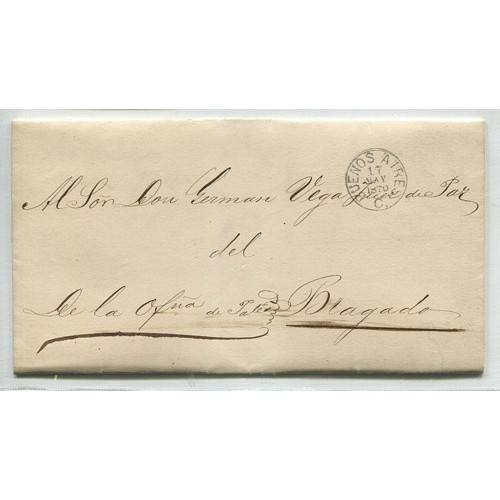 BUENOS AIRES
17
MAY
1870
C.
Al Sôr Don German Vega Juez de Paz
del
De la Ofña de Pat.es Bragado